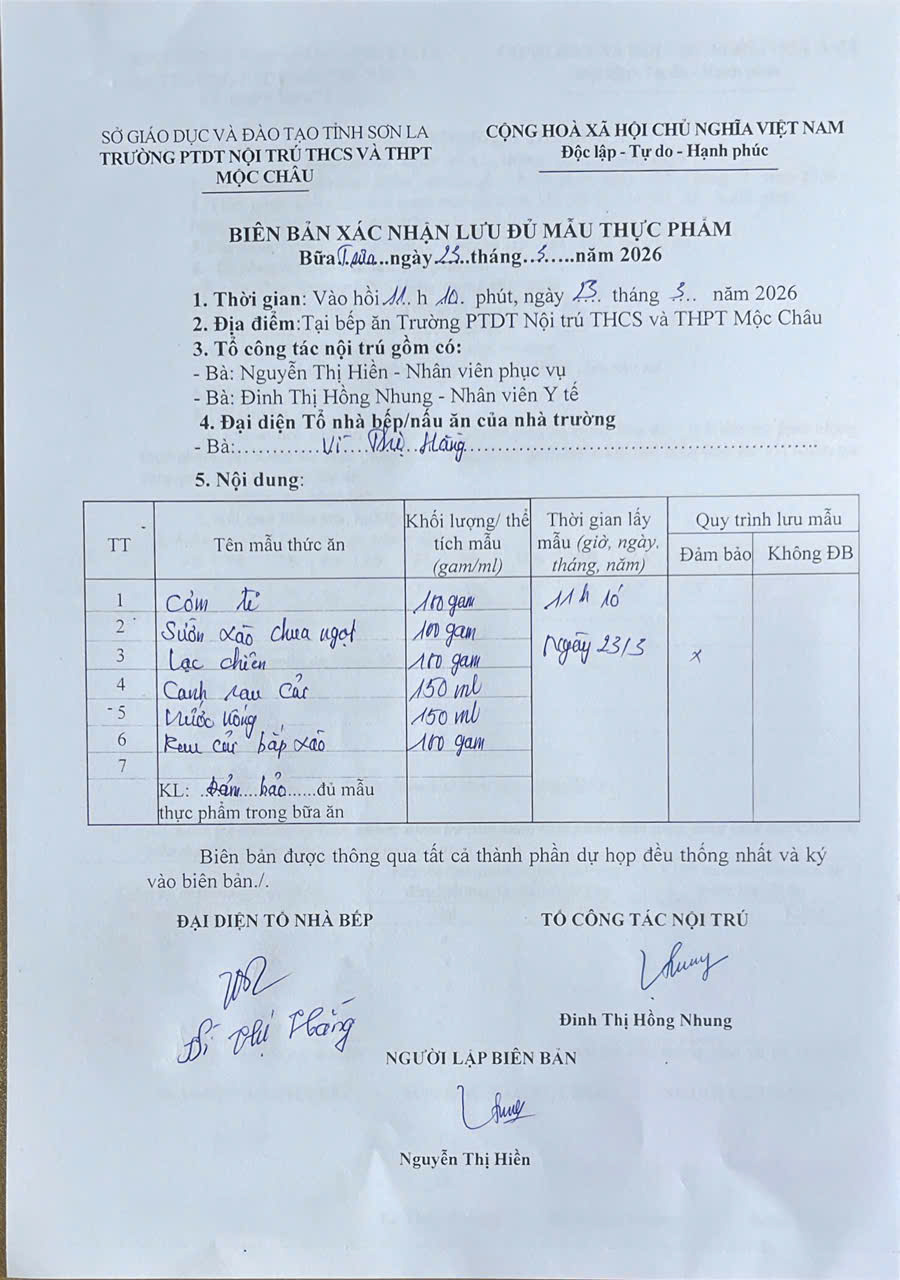 SỞ GIÁO DỤC VÀ ĐÀO TẠO TỈNH SƠN LA
TRƯỜNG PTDT NỘI TRÚ THCS VÀ THPT
MỘC CHÂU
CỘNG HOÀ XÃ HỘI CHỦ NGHĨA VIỆT NAM
Độc lập - Tự do - Hạnh phúc
BIÊN BẢN XÁC NHẬN LƯU ĐỦ MẪU THỰC PHẨM
Bữa Trưa...ngày 23..tháng..3.....năm 2026
1. Thời gian: Vào hồi 11.. h 10. phút, ngày 23... tháng 3... năm 2026
2. Địa điểm:Tại bếp ăn Trường PTDT Nội trú THCS và THPT Mộc Châu
3. Tổ công tác nội trú gồm có:
- Bà: Nguyễn Thị Hiền - Nhân viên phục vụ
- Bà: Đinh Thị Hồng Nhung - Nhân viên Y tế
4. Đại diện Tổ nhà bếp/nấu ăn của nhà trường
- Bà:............Vì Thị Hằng............
5. Nội dung:
TT Tên mẫu thức ăn Khối lượng/ thể tích mẫu (gam/ml) Thời gian lấy mẫu (giờ, ngày, tháng, năm) Quy trình lưu mẫu
Đảm bảo Không ĐB
1 Cơm tẻ 100 gam 11h 10
2 Sườn xào chua ngọt 100 gam
3 Lạc chiên 100 gam Ngày 23/3 x
4 Canh rau cải 150 ml
5 Nước uống 150 ml
6 Rau cải bắp xào 100 gam
7
KL: ..Đảm....bảo......đủ mẫu
thực phẩm trong bữa ăn
Biên bản được thông qua tất cả thành phần dự họp đều thống nhất và ký
vào biên bản./.
ĐẠI DIỆN TỔ NHÀ BẾP
TỔ CÔNG TÁC NỘI TRÚ
Vì Thị Hằng
Đinh Thị Hồng Nhung
NGƯỜI LẬP BIÊN BẢN
Nguyễn Thị Hiền